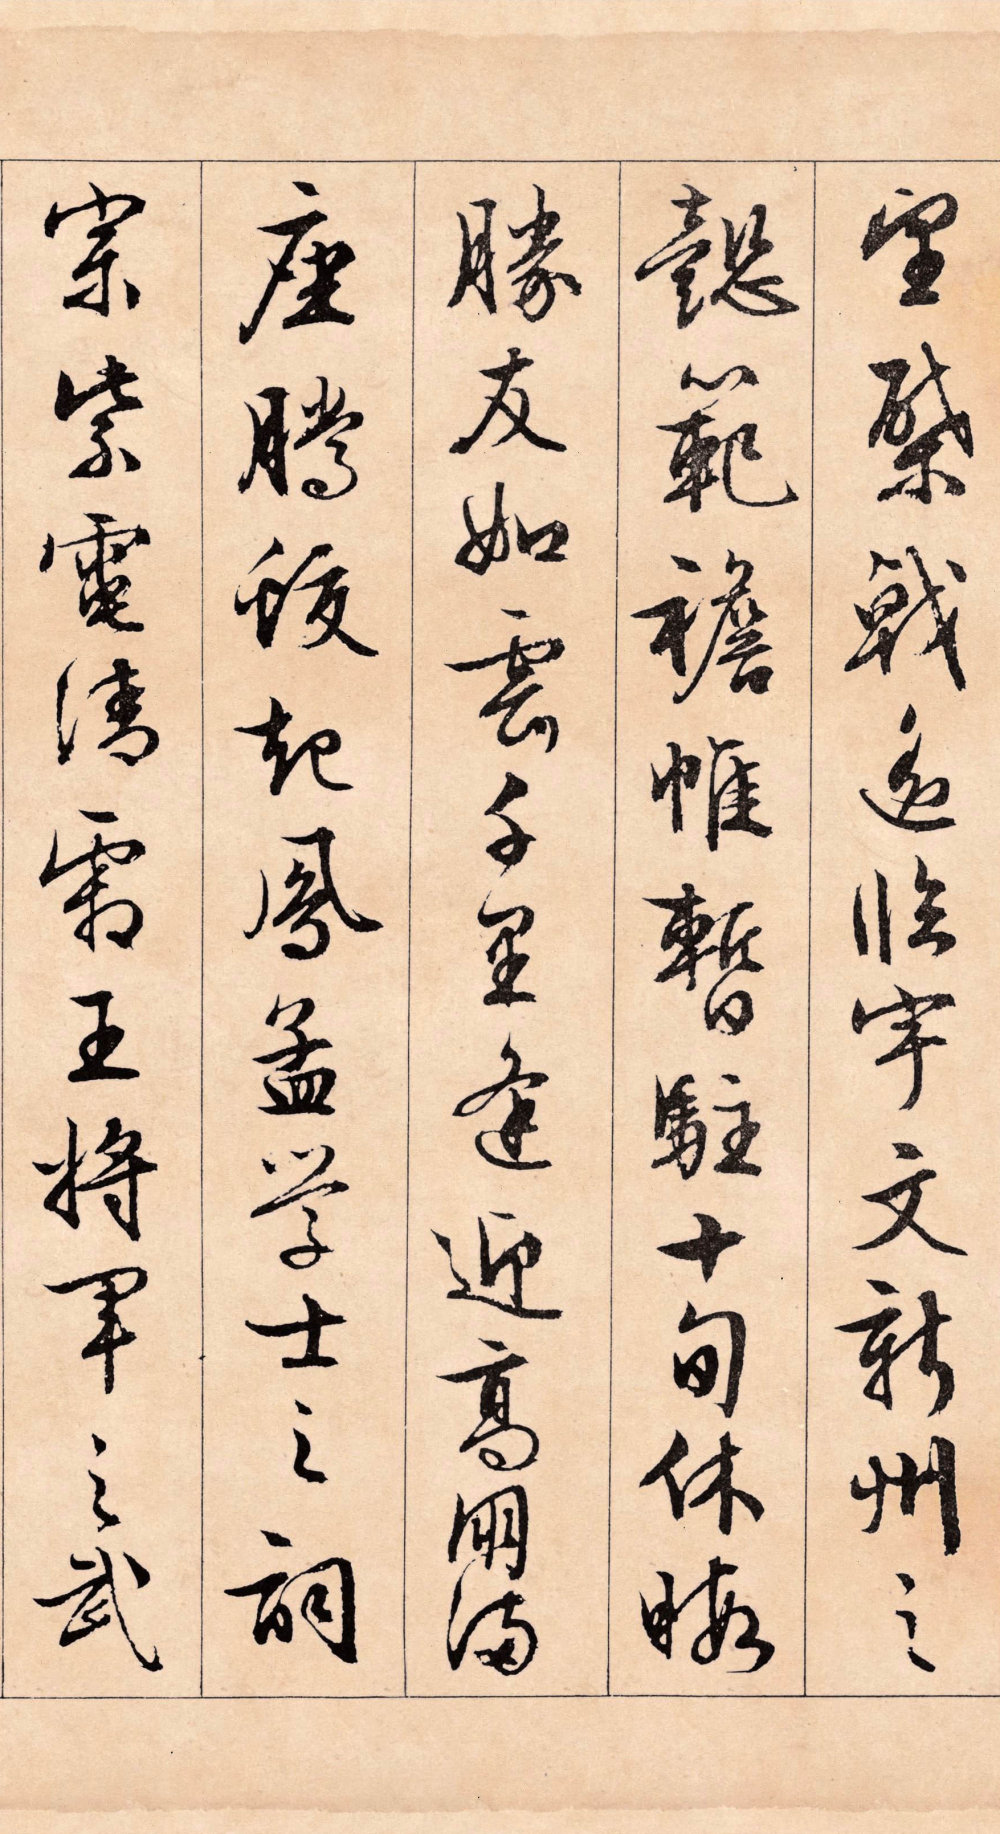 望棨戟遙臨宇文新州之
懿範襜帷暫駐十旬休暇
勝友如雲千里逢迎高朋滿
座騰蛟起鳳孟学士之詞
宗紫電清霜王将軍之武